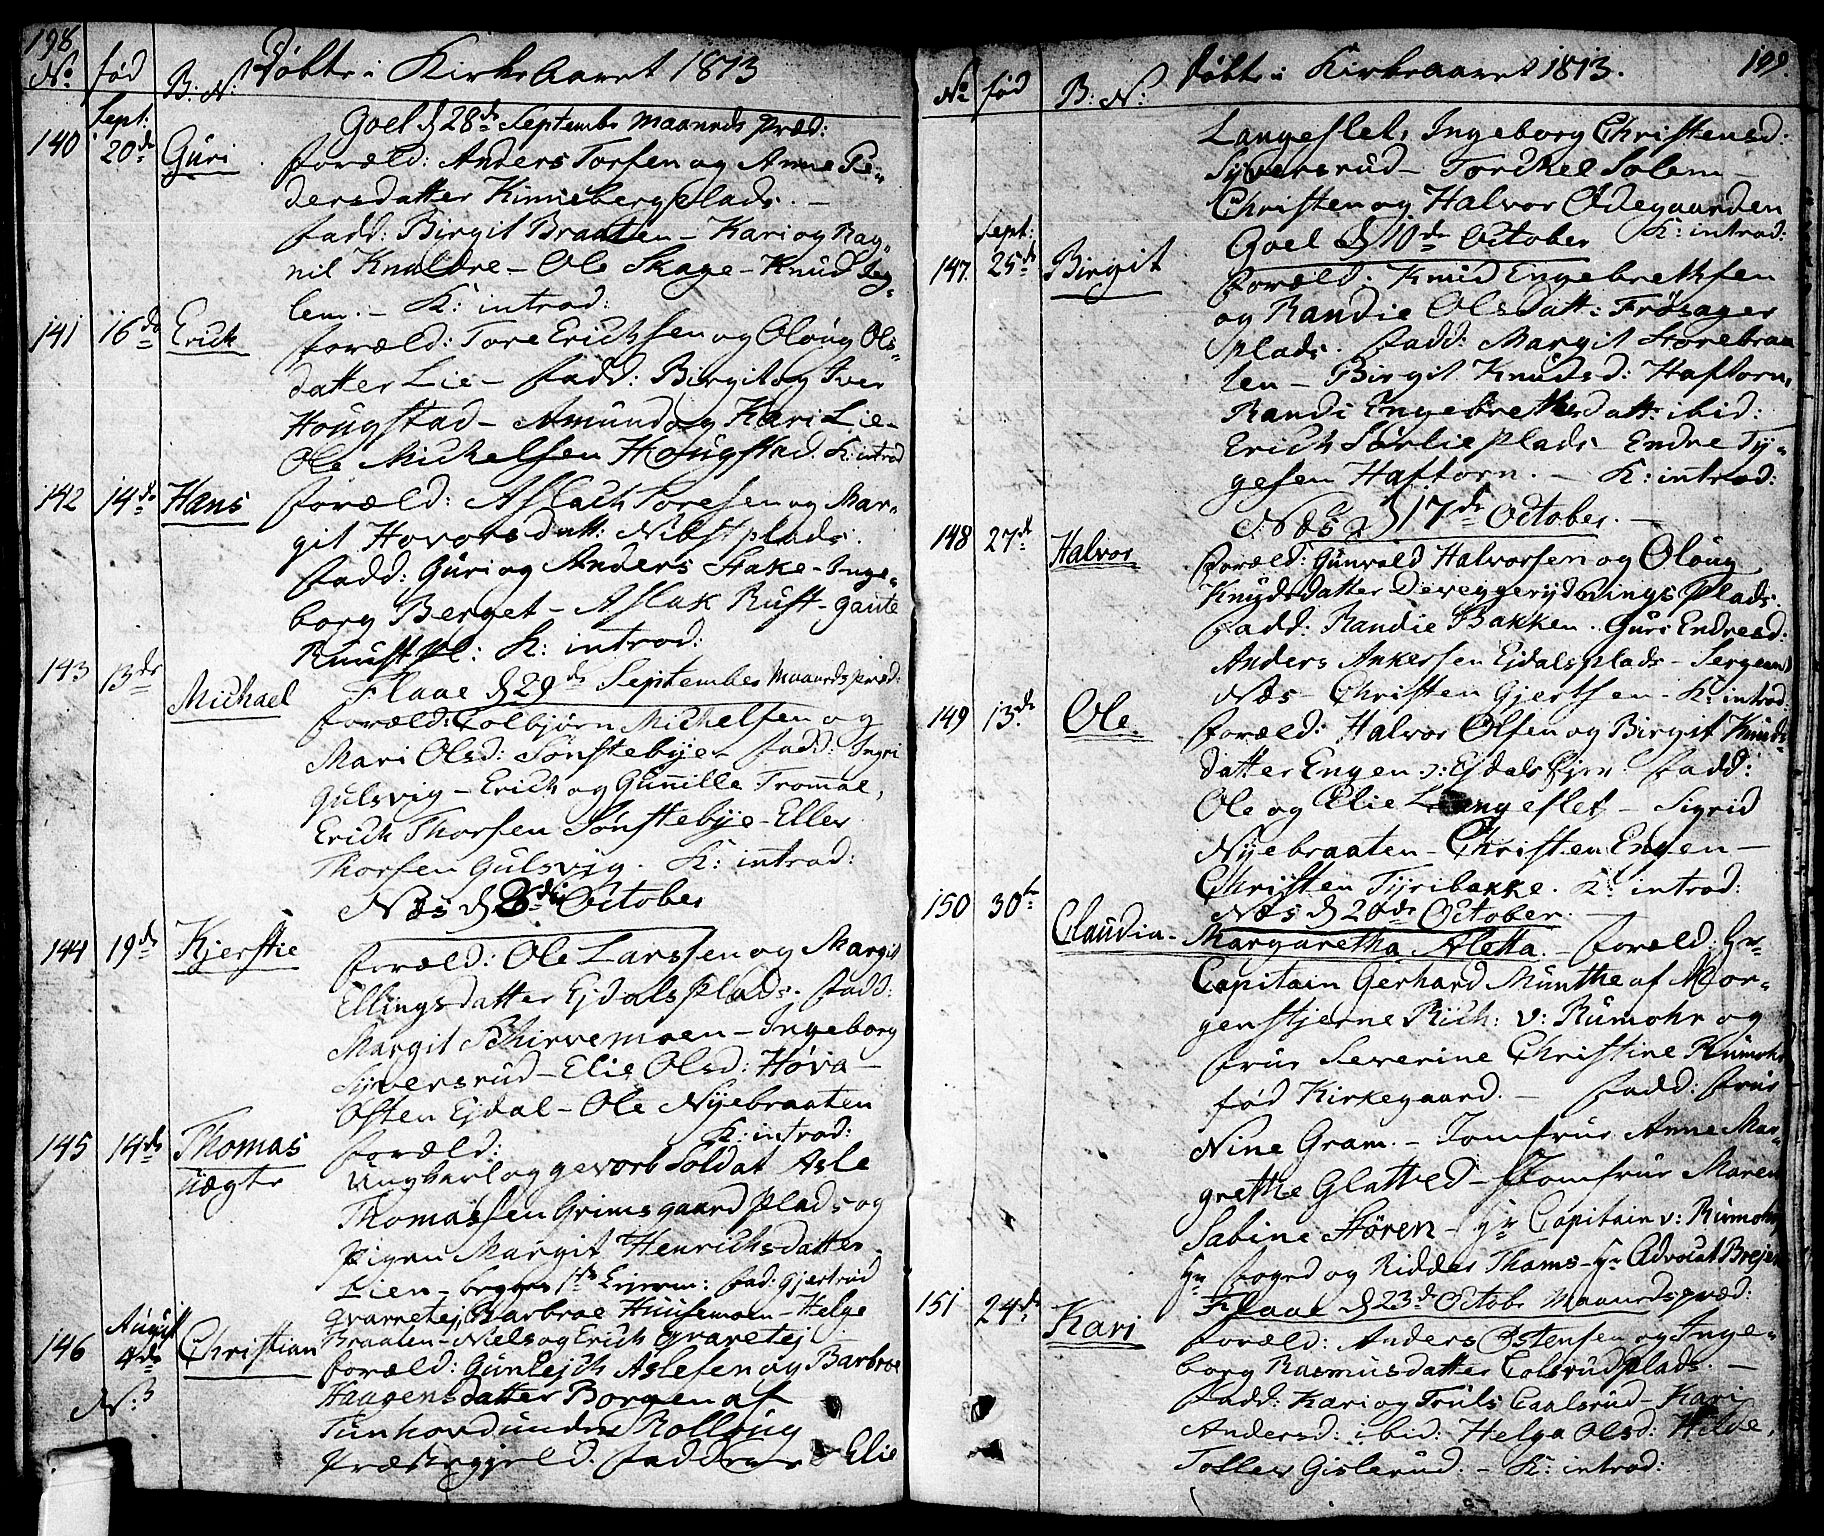 198
No. fød B: N: Døbte i Kirke Aaret 1813
Goel d 28de Septembr Maaneds præd:
140 Sept: 20de Guri
Foræld: Anders Torsen og Anne Pe-
dersdatter Kinneberg Plads. -
Fadd: Birgit Braaten - Kari og Rag-
nil Knaldre - Ole Skage - Knud
lem. - K: introd:
141 16de Erick
Foræld: Tore Erichsen og Oloug Ols-
datter Lie - Fadd: Birgit og Iver
Hougstad - Amund og Kari Lie -
Ole Michelsen Hougstad. K: introd
142 14de Hans
Foræld: Aslach Toresen og Mar-
git Hovorsdatt: Nibstplads.
Fadd: Guri og Anders Stake - Inge-
borg Berget - Aslak Rust - Gaute
Ruust Pl: K: introd:
143 13de Michael
Flaae d 29de September Maaneds præd:
Foræld: Colbjørn Michelsen og
Mari Olsd: Sønstebye - Fadd: Ingri
Gulsvig - Erich og Gunille Trommal,
Erich Thorsen Sønstebye - Eller
Thorsen Gulsvig. K: introd:
Næs d 3die October
144 19de Kjerstie
Foræld: Ole Larssen og Margit
Ellingsdatter Ejdals Plads. Fadd:
Margit Schirvemoen - Ingeborg
Syversrud - Elie Olsd: Høva -
Østen Ejdal - Ole Nyebraaten
K: introd:
145 14de Thomas uægte
Foræld:
Ungkarl og gevorb Soldat Asle
Thomassen Grimsgaard Plads og
Pigen Margit Henrichsdatter
Lien - begges 1ste Lejerm: Fad: Gjertrud
Qvarnetej, Barbroe Huusemoen - Helge
Braaten - Niels og Erich Qvarnetej
146 August 4de Christian
N: B
Foræld: Gunlejch Aslesen og Barbroe
Haagensdatter Borgen af
Tunhovd under Rolloug
Præstegjeld. Fadderne - Elie
199.
No fød B: N: Døbte i Kirkeaaret 1813.
Langeslet, Ingeborg Christensd:
Syversrud - Torchel Solem -
Christen og Halvor Ødegaarden
K: introd:
Goel d 10de October
147. Sept: 25de Birgit
Foræld: Knud Engebrethsen
og Randie Olsdatt: Frøsager
Plads. Fadd: Margit Storebraa-
ten - Birgit Knudsd: Haftorn,
Randi Engebrethsdatt: ibid:
Erich Sørlie Plads - Endre Ty-
gesen Haftorn. - K: introd:
Næs d 17de October. -
148 27de Halvor
Foræld: Gunvald Halvorsen og Oloug
Knudsdatter Deveggerydnings Plads.
Fadd: Randie Bakken. Guri Endresd:
Anders Ankersen Ejdalsplads - Sergeant
Næs - Christen Gjertsen - K: introd:
149 13de Ole.
Foræld: Halvor Olsen og Birgit Knuds-
datter Engen ɔ: Ejdals Ejer. Fadd:
Ole og Elie Langeslet - Sigrid
Nyebraaten - Christen Engen -
Christen Tyribakke. K: introd:
Næs d 20de October. -
150 30te Claudia
Margaretha Aletta. - Foræld: Hr
Capitain Gerhard Munthe af Mor-
genstjerne Rich: v: Rumohr og
Frue Severine Christine Rumohr
fød Kirkegaard. - Fadd: Frue
Nine Gram. - Jomfrue Anne Mar-
grethe Glatved - Jomfrue Maren
Sabine Støren - Hr Capitain v: Rumohr
Hr Foged og Ridder Thams - Hr Advocat Brejer
Flaae d 23de Octobr Maanedspræd:
151 24de Kari
Foræld: Anders Østensen og Inge-
borg Rasmusdatter Colsrudplads. -
Fadd: Kari og Truls Caalsrud - Kari
Andersd: ibid: Helga Olsd: Hilde,
Tolles Gislerud. - K: introd: